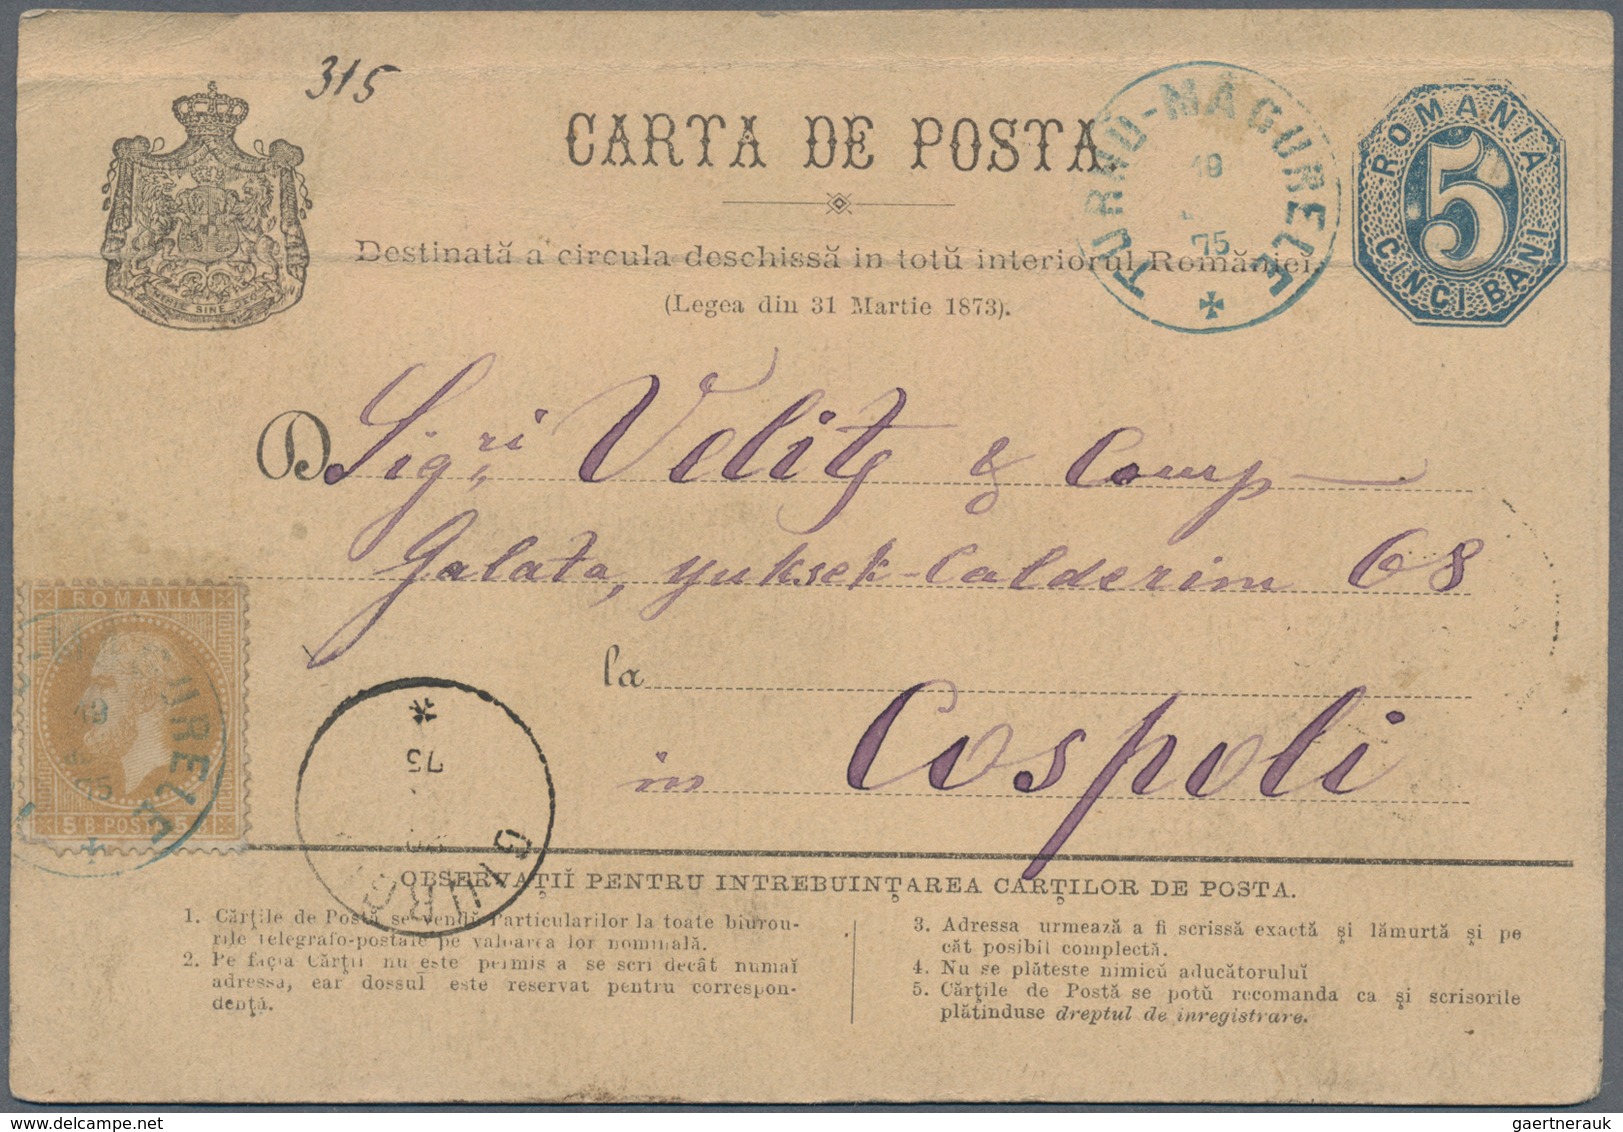 315
CARTA DE POSTA
TURNU-MĂGURELE
19
75
ROMANIA
5
CINCI BANI
Destinată a circula deschissă in totŭ interiorul Românieĭ.
SINE DEO
(Legea din 31 Martie 1873).
D Sigri Velitz & Comp
Galata, yuksek-Calderim 68
la
in Cospoli
ROMANIA
19
75
5 B POSTA 5 B
75
OBSERVAȚIĬ PENTRU INTREBUINȚAREA CĂRȚILOR DE POSTA.
1. Cărțile de Postă se vendă Particularilor la toate biurou-
rile Telegrafo-postale pe valoarea lor nominală.
2. Pe facia Cărțiĭ nu este permis a se scri decât numaĭ
adressa, ear dossul este reservat pentru correspon-
dență.
3. Adressa urmează a fi scrissă exactă și lămurtă și pe
cât posibil complectă.
4. Nu se plăteste nimicŭ aducătoruluĭ
5. Cărțile de Postă se potŭ recomanda ca și scrisorile
plătinduse dreptul de inregistrare.
gaertnerauk